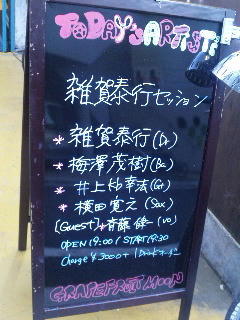 TODAY'S ARTIST
雑賀泰行セッション
* 雑賀泰行(Dr)
* 梅澤茂樹(Ba)
* 井上 幸法(Gt)
* 横田寛之(Sax)
[Guest] * 斉藤 一(vo)
OPEN 19:00 / START 19:30
Charge ¥3000 + 1Drinkオーダー
GRAPEFRUIT MOON